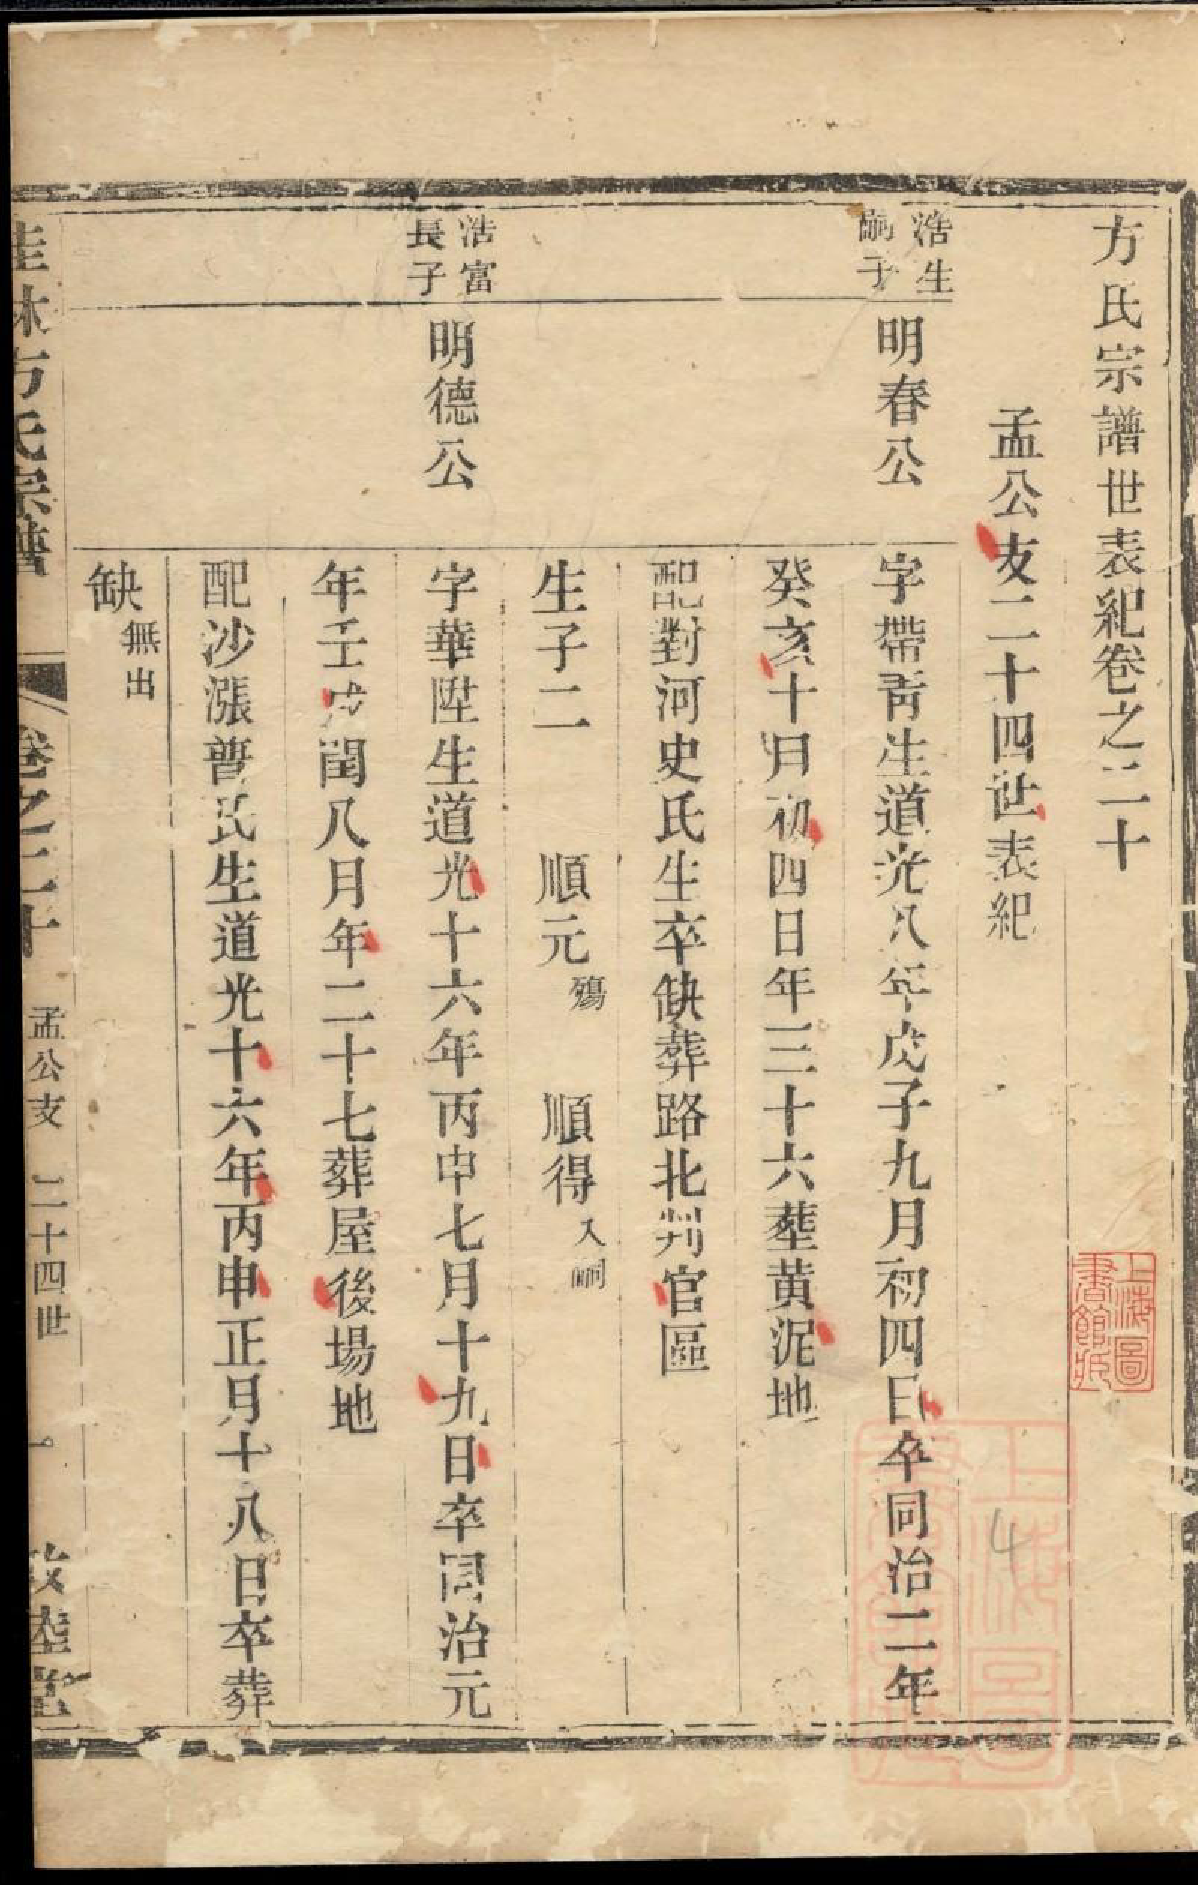 方氏宗譜世表紀卷之二十
孟公支二十四世表紀
浩生
嗣子
明春公
字帶青生道光八年戊子九月初四日卒同治二年
癸亥十月初四日年三十六塟黄泥地
配對河史氏生卒缺葬路北判官區
生子二 順元殤 順得入嗣
浩富
長子
明德公
字華陞生道光十六年丙申七月十九日卒同治元
年壬戌閏八月年二十七葬屋後場地
配沙漲普氏生道光十六年丙申正月十八日卒葬
缺無出
桂林方氏宗譜 卷之二十 孟公支 二十四世 一 敦睦堂
上海圖書館藏
上海圖書館藏
4